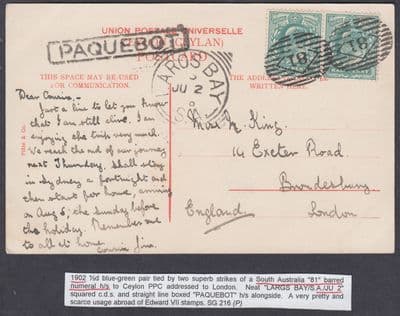 UNION POSTALE UNIVERSELLE
(CEYLON)
POSTCARD
PAQUEBOT
THIS SPACE MAY BE USED
FOR COMMUNICATION.
THE ADDRESS
WRITTEN HERE.
LARGS BAY
JU 2
S.A
81
81
Dear Cousin,
Just a line to let you know
that I am still alive. I am
enjoying the trip very much.
We reach the end of our journey
next Thursday. Shall stay
in Sydney a fortnight and
then start for home, arriving
on Aug 5, the Sunday before
the holiday. Remember me
to all at home
Cousin
King
14 Exeter Road
Brondesbury
London
England
Plâté & Co.
1902 ½d blue-green pair tied by two superb strikes of a South Australia "81" barred
numeral h/s to Ceylon PPC addressed to London. Neat "LARGS BAY/S.A./JU 2"
squared c.d.s. and straight line boxed "PAQUEBOT" h/s alongside. A very pretty and
scarce usage abroad of Edward VII stamps. SG 216 (P)